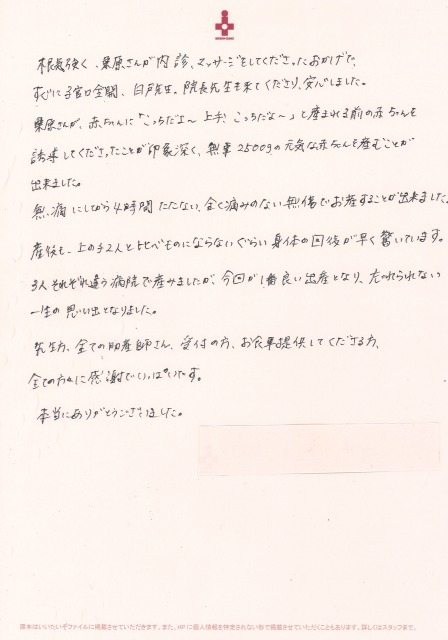 根気強く、栗原さんが内診、マッサージをしてくださったおかげで、
すぐに子宮口全開、臼戸先生、院長先生も来てくださり、安心しました。
栗原さんが、赤ちゃんに「こっちだよ〜上手、こっちだよ〜」と産まれる前の赤ちゃんを
誘導してくださったことが印象深く、無事2500gの元気な赤ちゃんを産むことが
出来ました。
無痛にしてから4時間たたない、全く痛みのない無傷でお産することが出来ました。
産後も、上の子2人と比べものにならないぐらい身体の回復が早く驚いています。
3人それぞれ違う病院で産みましたが、今回が1番良い出産となり、忘れられない
一生の思い出となりました。
先生方、全ての助産師さん、受付の方、お食事提供してくださる方、
全ての方々に感謝でいっぱいです。
本当にありがとうございました。
原本はいいたいぞファイルに掲載させていただきます。また、HPに個人情報を特定されない形で掲載させていただくこともあります。詳しくはスタッフまで。